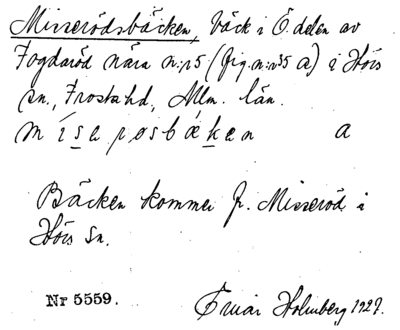 Misserödsbäcken, bäck i Ö. delen av
Fogdaröd nära n:r 5 (fig. n:r 35 a) i Hörs
sn, Frosta hd, Mlm. län.
a
Bäcken kommer fr. Misseröd i
Hörs sn.
Nr 5559.
Einar Holmberg 1929.